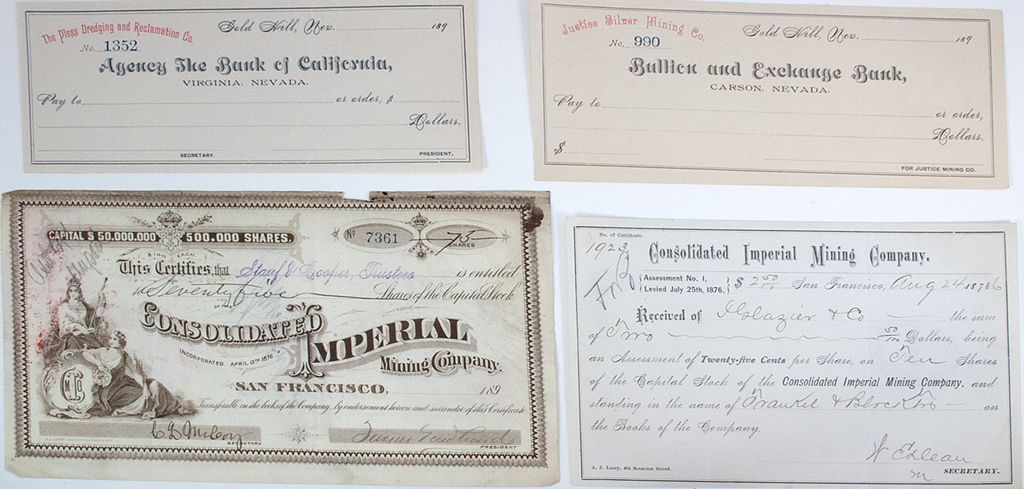 The Pless Dredging and Reclamation Co.
Gold Hill, Nev. 189
No. 1352
Agency The Bank of California,
VIRGINIA, NEVADA.
Pay to or order, $
Dollars.
SECRETARY. PRESIDENT.
Justice Silver Mining Co.
Gold Hill, Nev. 189
No. 990
Bullion and Exchange Bank,
CARSON, NEVADA.
Pay to or order,
Dollars.
$
FOR JUSTICE MINING CO.
CAPITAL $50,000,000 500,000 SHARES.
No 7361 75 SHARES
$100 EACH
This Certifies, that Stauf & Cooper, Trustees is entitled
to Seventy five Shares of the Capital Stock
OF THE
CONSOLIDATED IMPERIAL
INCORPORATED APRIL 13TH 1876
Mining Company.
SAN FRANCISCO, 189
Transferable on the books of the Company, by endorsement hereon and surrender of this Certificate
SECRETARY PRESIDENT
No. of Certificate.
1923 Consolidated Imperial Mining Company.
Assessment No. 1,
Levied July 25th, 1876. $ 2 50/100 San Francisco, Aug 24 1876
Received of Glazier & Co the sum
of Two 50/100 Dollars, being
an Assessment of Twenty-five Cents per Share, on Ten Shares
of the Capital Stock of the Consolidated Imperial Mining Company, and
standing in the name of Frankel & Block on
the Books of the Company.
W E Dean
SECRETARY.
A. J. Leary, 402 Sansome Street.